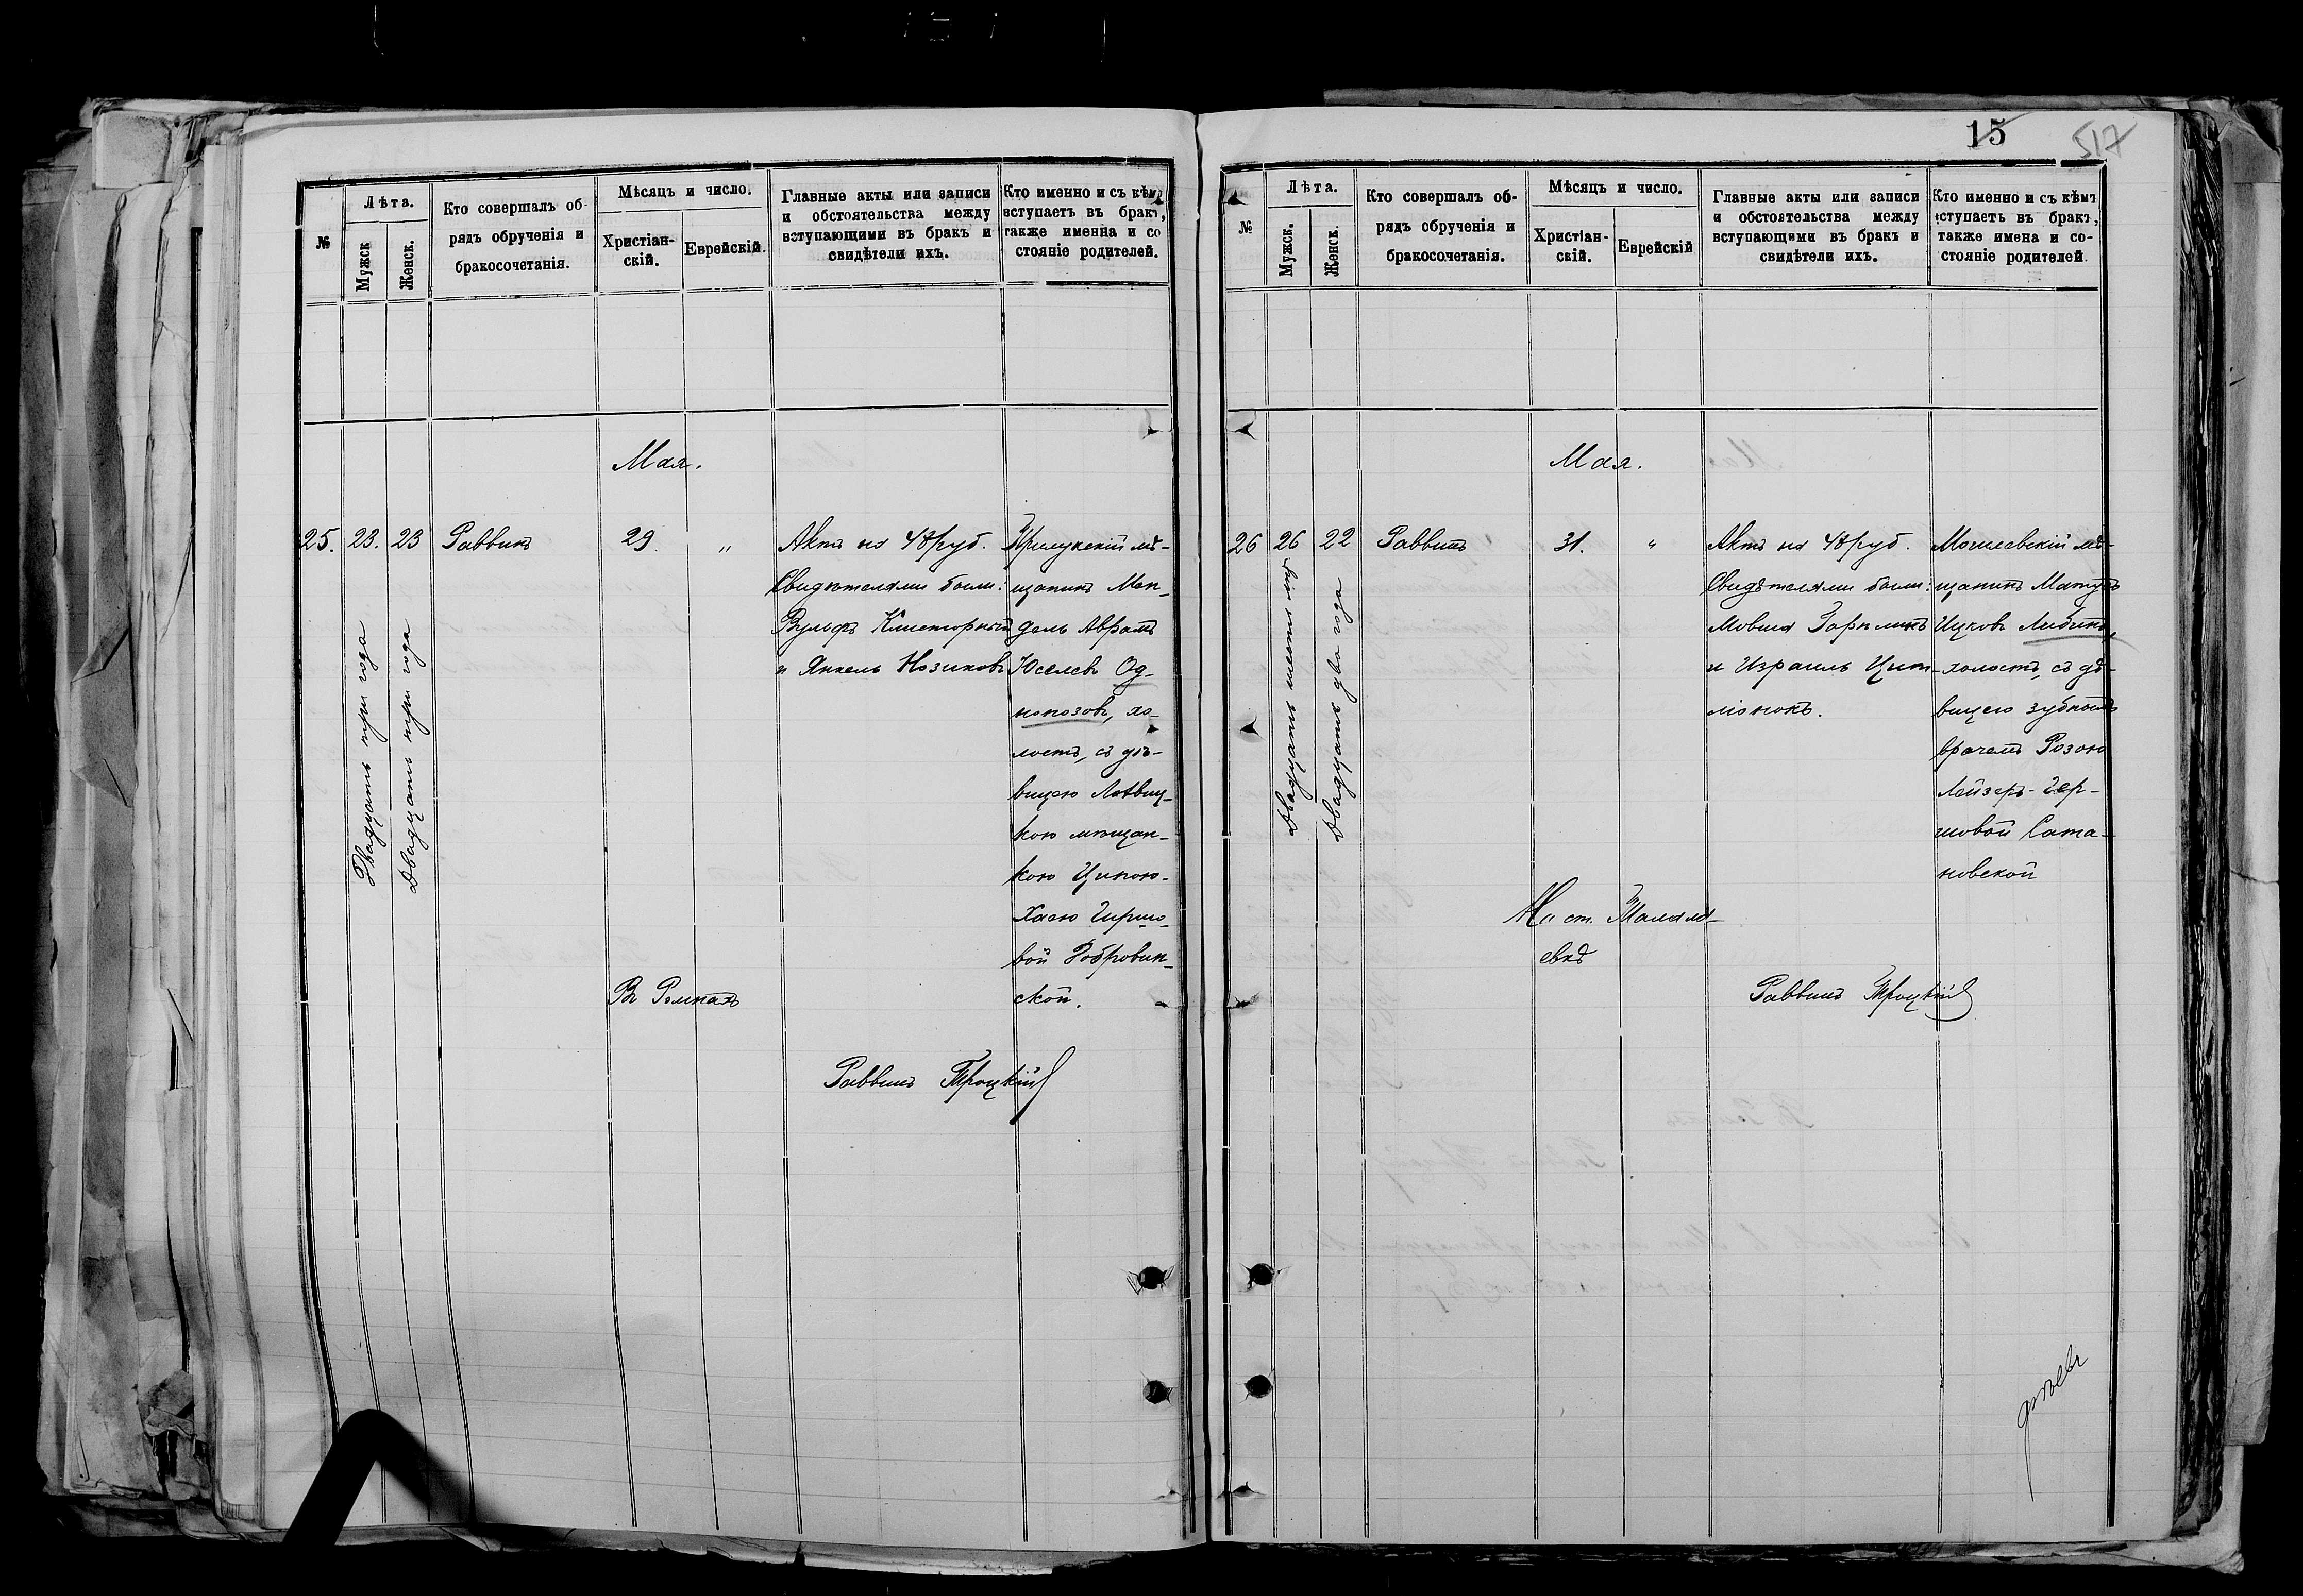 15
517
№
Лѣта.
Мужск
Женск.
Кто совершалъ об-
рядъ обрученія и
бракосочетанія.
Мѣсяцъ и число.
Христіан-
скій.
Еврейскій.
Главные акты или записи
и обстоятельства между
вступающими въ бракъ и
свидѣтели ихъ.
Кто именно и съ кѣмъ
вступаетъ въ бракъ,
также именна и со
стояніе родителей.
Мая.
25. 23. 23 Раввинъ 29. "
Двадцать три года
Двадцать три года
Актъ на 48 руб.
Свидѣтелями были:
Вульфъ
и Янкель Нозиковъ
Прилукскій мѣ-
щанинъ Мен-
дель Аврамъ
Юселевъ Од-
нопозовъ, хо-
лостъ, съ дѣ-
вицею
кою мѣщан-
кою Ципою-
Хасею Гиршо-
вой Добровин-
ской.
Въ Ромнахъ
Раввинъ Троцкій
№
Лѣта.
Мужск.
Женск.
Кто совершалъ об-
рядъ обрученія и
бракосочетанія.
Мѣсяцъ и число.
Христіан-
скій.
Еврейскій
Главные акты или записи
и обстоятельства между
вступающими въ бракъ и
свидѣтели ихъ.
Кто именно и съ кѣмъ
вступаетъ въ бракъ,
также имена и со-
стояніе родителей.
Мая.
26 26 22 Раввинъ 31. "
Двадцать шесть лѣтъ
Двадцать два года
Актъ на 48 руб.
Свидѣтелями были:
Мовша
и Израиль Цит-
Могилевскій мѣ-
щанинъ Матусъ
Ицковъ Либинъ,
холостъ, съ дѣ-
вицею зубнымъ
врачемъ Розою
Лейзеръ-Гер-
шовой Сата-
новской
На ст.
Раввинъ Троцкій